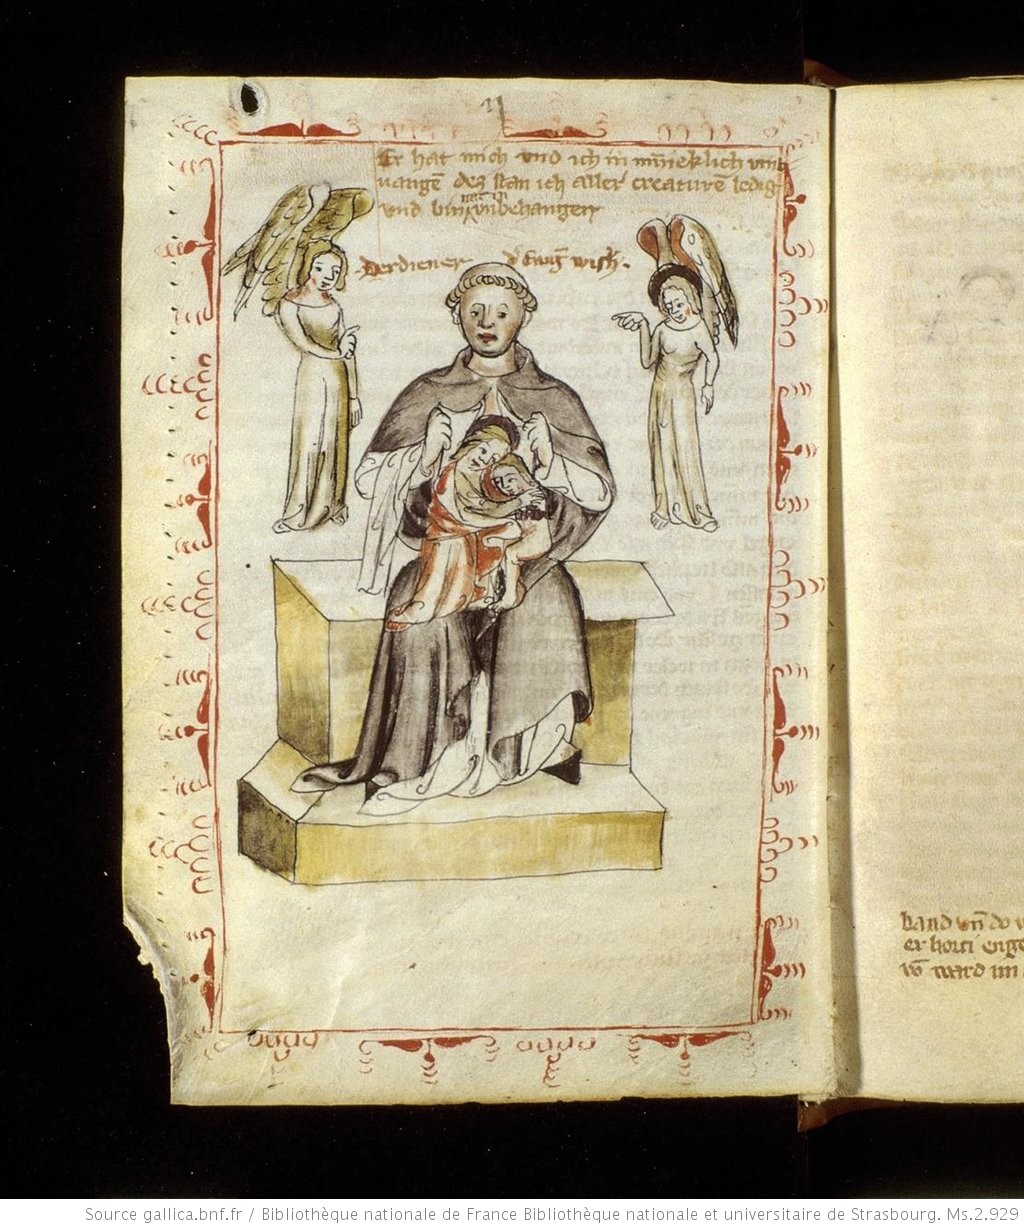 Er hat mich vnd ich in miñeklich vmb
vangē dez stan ich aller creaturē ledig
vnd bin mit in vnbehangen
Der diener d' Ewigē wish.
band vn̄ do
er horti
vō ward im
Source gallica.bnf.fr / Bibliothèque nationale de France Bibliothèque nationale et universitaire de Strasbourg. Ms.2.929